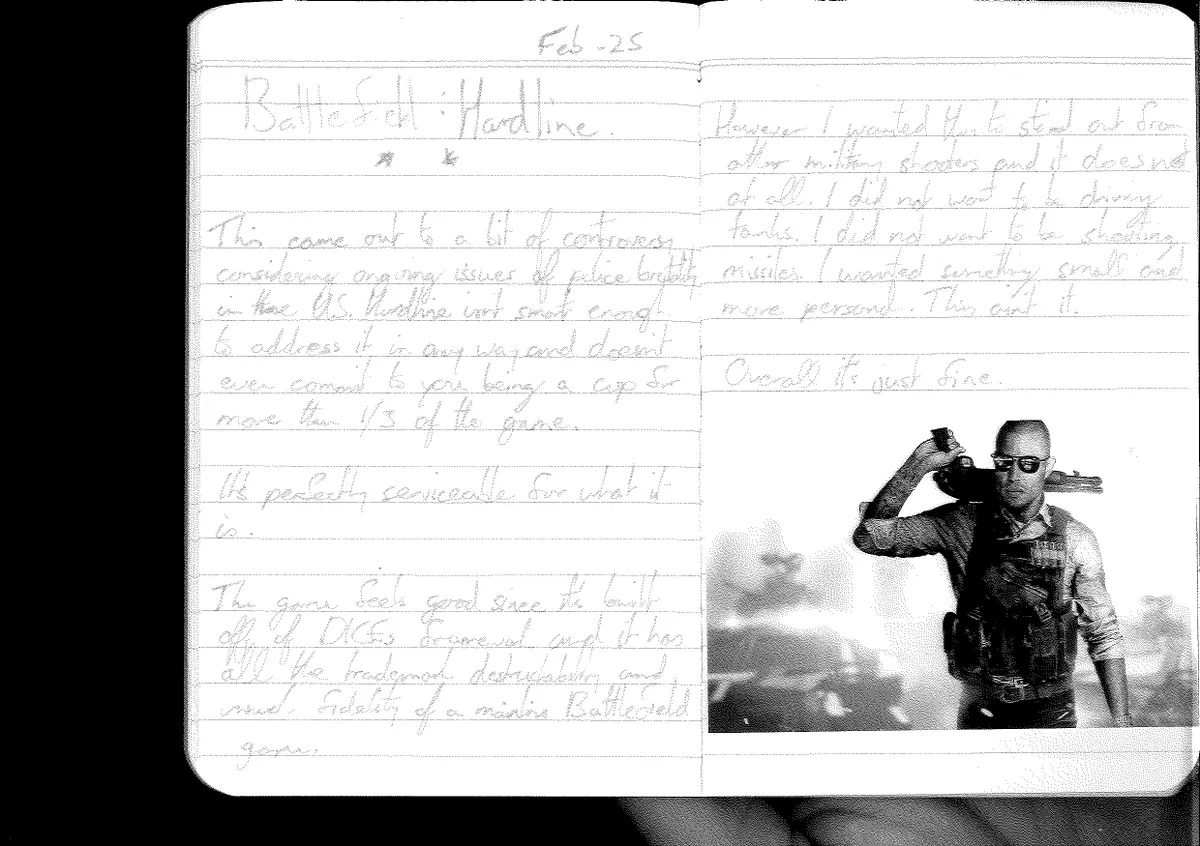 Feb -25
Battlefield : Hardline.
* *
This came out to a bit of controversy
considering ongoing issues of police brutality
in the U.S. Hardline isnt smart enough
to address it in any way and doesnt
even commit to you being a cop for
more than 1/3 of the game.
It's perfectly serviceable for what it
is.
The game feels good since it's built
off of DICEs framework and it has
all the trademark destructability and
visual fidelity of a mainline Battlefield
game.
However I wanted this to stand out from
other military shooters and it does not
at all. I did not want to be driving
tanks. I did not want to be shooting
missiles. I wanted something small and
more personal. This ain't it.
Overall it's just fine.